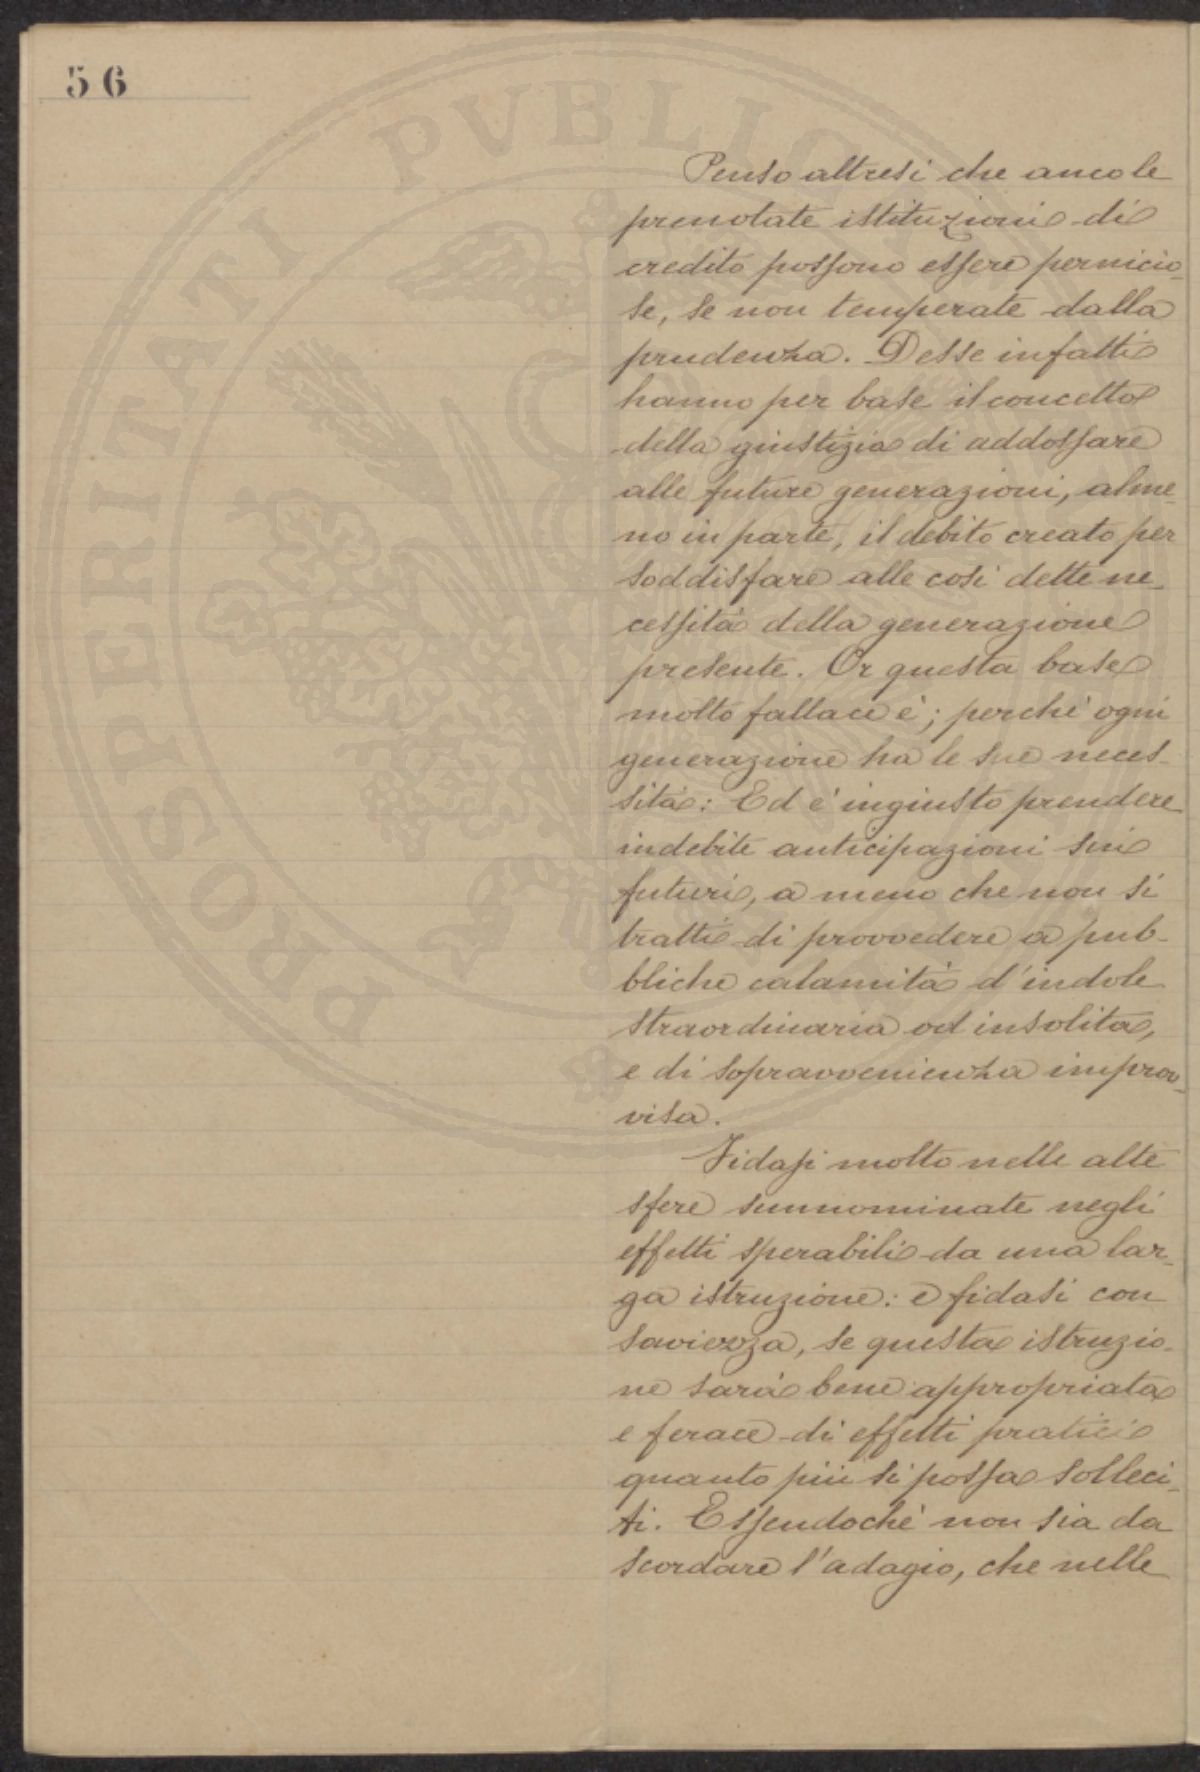 56
PROSPERITATI PVBLIC
Penso altresì che anco le
prenotate istituzioni di
credito possono essere pernicio-
se, se non temperate dalla
prudenza. Desse infatti
hanno per base il concetto
della giustizia di addossare
alle future generazioni, alme-
no in parte, il debito creato per
soddisfare alle così dette ne-
cessità della generazione
presente. Or questa base
molto fallace è; perchè ogni
generazione ha le sue neces-
sità: Ed è ingiusto prendere
indebite anticipazioni sui
futuri, a meno che non si
tratti di provvedere a pub-
bliche calamità d'indole
straordinaria od insolita,
e di sopravvenienza improv-
visa.
Fidasi molto nelle alte
sfere sunnominate negli
effetti sperabili da una lar-
ga istruzione: e fidasi con
saviezza, se questa istruzio-
ne sarà bene appropriata
e ferace di effetti pratici
quanto più si possa solleci-
ti. Essendochè non sia da
scordare l'adagio, che nelle